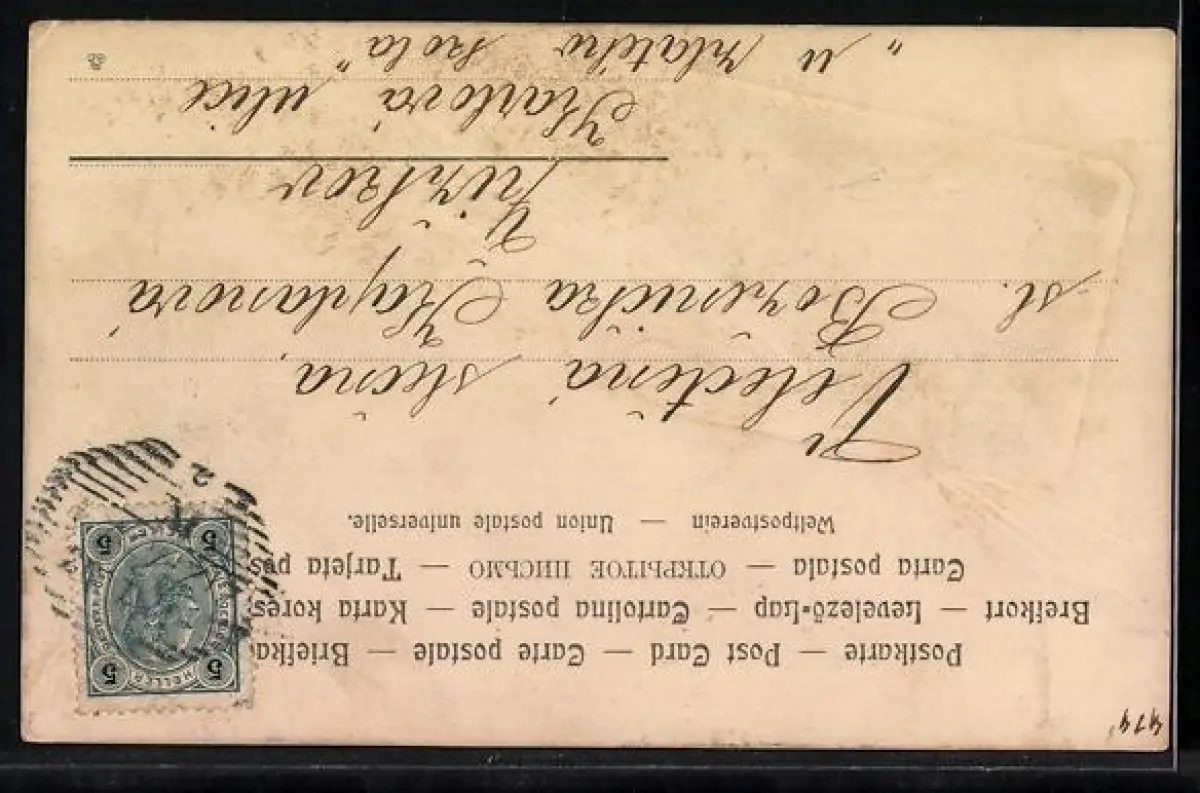 474
Postkarte — Post Card — Carte postale — Briefka
Brefkort — Levelező-Lap — Cartolina postale — Karta kores
Carta postala — ОТКРЫТОЕ ПИСЬМО — Tarjeta pos
Weltpostverein — Union postale universelle.
5 HELLER 5
5 5
2
Velectěná slečna,
sl. Boženička Kaplanová
Žižkov
Karlova ulice
„u zlatého